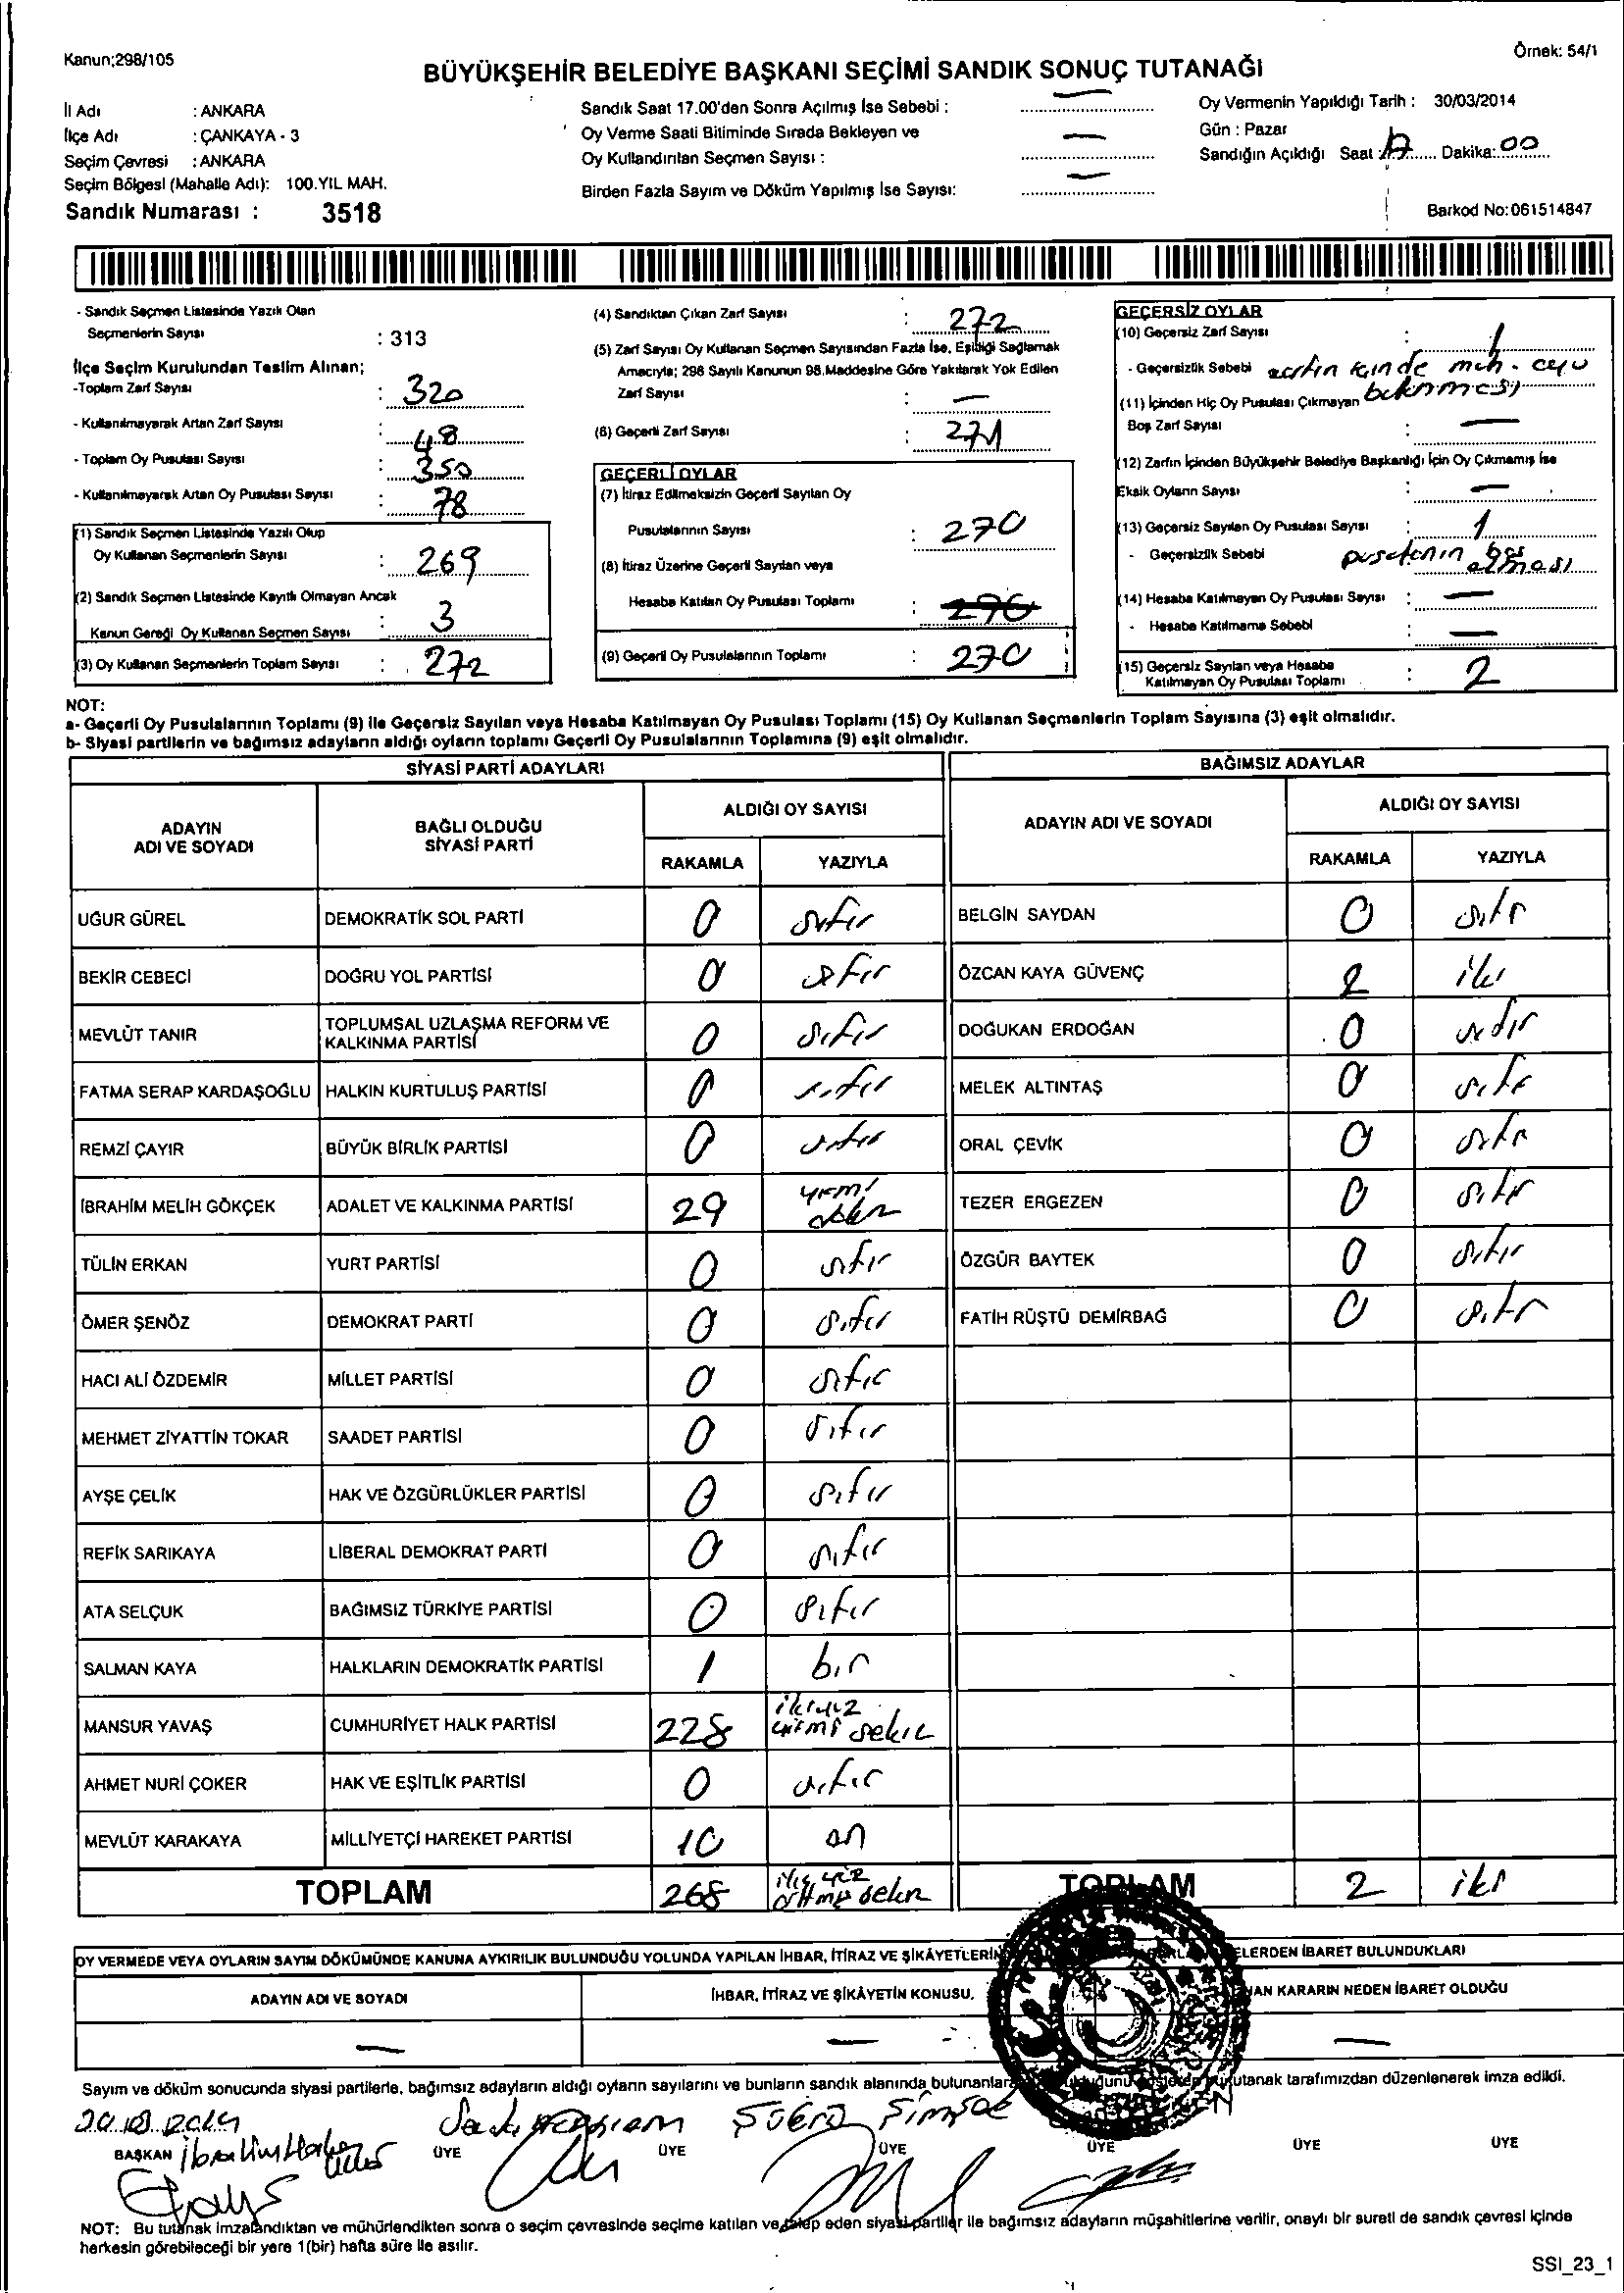 Kanun;298/105
Örnek: 54/1
BÜYÜKŞEHİR BELEDİYE BAŞKANI SEÇİMİ SANDIK SONUÇ TUTANAĞI
İl Adı : ANKARA
İlçe Adı : ÇANKAYA - 3
Seçim Çevresi : ANKARA
Seçim Bölgesi (Mahalle Adı): 100.YIL MAH.
Sandık Numarası : 3518
Sandık Saat 17.00'den Sonra Açılmış İse Sebebi : —
Oy Verme Saati Bitiminde Sırada Bekleyen ve
Oy Kullandırılan Seçmen Sayısı : —
Birden Fazla Sayım ve Döküm Yapılmış İse Sayısı: —
Oy Vermenin Yapıldığı Tarih : 30/03/2014
Gün : Pazar
Sandığın Açıldığı Saat : 17 Dakika: 00
Barkod No:061514847
- Sandık Seçmen Listesinde Yazılı Olan
Seçmenlerin Sayısı : 313
İlçe Seçim Kurulundan Teslim Alınan;
-Toplam Zarf Sayısı : 320
- Kullanılmayarak Artan Zarf Sayısı : 48
- Toplam Oy Pusulası Sayısı : 350
- Kullanılmayarak Artan Oy Pusulası Sayısı : 78
(1) Sandık Seçmen Listesinde Yazılı Olup
Oy Kullanan Seçmenlerin Sayısı : 269
(2) Sandık Seçmen Listesinde Kayıtlı Olmayan Ancak
Kanun Gereği Oy Kullanan Seçmen Sayısı : 3
(3) Oy Kullanan Seçmenlerin Toplam Sayısı : 272
(4) Sandıktan Çıkan Zarf Sayısı : 272
(5) Zarf Sayısı Oy Kullanan Seçmen Sayısından Fazla İse, Eşitliği Sağlamak
Amacıyla; 298 Sayılı Kanunun 98.Maddesine Göre Yakılarak Yok Edilen
Zarf Sayısı : —
(6) Geçerli Zarf Sayısı : 271
GEÇERLİ OYLAR
(7) İtiraz Edilmeksizin Geçerli Sayılan Oy
Pusulalarının Sayısı : 270
(8) İtiraz Üzerine Geçerli Sayılan veya
Hesaba Katılan Oy Pusulası Toplamı : 270
(9) Geçerli Oy Pusulalarının Toplamı : 270
GEÇERSİZ OYLAR
(10) Geçersiz Zarf Sayısı : 1
- Geçersizlik Sebebi zarfın içinde muh. oyu
bulunması
(11) İçinden Hiç Oy Pusulası Çıkmayan
Boş Zarf Sayısı : —
(12) Zarfın İçinden Büyükşehir Belediye Başkanlığı İçin Oy Çıkmamış İse
Eksik Oyların Sayısı : —
(13) Geçersiz Sayılan Oy Pusulası Sayısı : 1
- Geçersizlik Sebebi pusulanın boş
olması
(14) Hesaba Katılmayan Oy Pusulası Sayısı : —
- Hesaba Katılmama Sebebi : —
(15) Geçersiz Sayılan veya Hesaba
Katılmayan Oy Pusulası Toplamı : 2
NOT:
a- Geçerli Oy Pusulalarının Toplamı (9) ile Geçersiz Sayılan veya Hesaba Katılmayan Oy Pusulası Toplamı (15) Oy Kullanan Seçmenlerin Toplam Sayısına (3) eşit olmalıdır.
b- Siyasi partilerin ve bağımsız adayların aldığı oyların toplamı Geçerli Oy Pusulalarının Toplamına (9) eşit olmalıdır.
SİYASİ PARTİ ADAYLARI
ADAYIN ADI VE SOYADI
BAĞLI OLDUĞU SİYASİ PARTİ
ALDIĞI OY SAYISI
RAKAMLA YAZIYLA
UĞUR GÜREL DEMOKRATİK SOL PARTİ 0 sıfır
BEKİR CEBECİ DOĞRU YOL PARTİSİ 0 sıfır
MEVLÜT TANIR TOPLUMSAL UZLAŞMA REFORM VE KALKINMA PARTİSİ 0 sıfır
FATMA SERAP KARDAŞOĞLU HALKIN KURTULUŞ PARTİSİ 0 sıfır
REMZİ ÇAYIR BÜYÜK BİRLİK PARTİSİ 0 sıfır
İBRAHİM MELİH GÖKÇEK ADALET VE KALKINMA PARTİSİ 29 yirmi dokuz
TÜLİN ERKAN YURT PARTİSİ 0 sıfır
ÖMER ŞENÖZ DEMOKRAT PARTİ 0 sıfır
HACI ALİ ÖZDEMİR MİLLET PARTİSİ 0 sıfır
MEHMET ZİYATTİN TOKAR SAADET PARTİSİ 0 sıfır
AYŞE ÇELİK HAK VE ÖZGÜRLÜKLER PARTİSİ 0 sıfır
REFİK SARIKAYA LİBERAL DEMOKRAT PARTİ 0 sıfır
ATA SELÇUK BAĞIMSIZ TÜRKİYE PARTİSİ 0 sıfır
SALMAN KAYA HALKLARIN DEMOKRATİK PARTİSİ 1 bir
MANSUR YAVAŞ CUMHURİYET HALK PARTİSİ 228 ikiyüz yirmi sekiz
AHMET NURİ ÇOKER HAK VE EŞİTLİK PARTİSİ 0 sıfır
MEVLÜT KARAKAYA MİLLİYETÇİ HAREKET PARTİSİ 10 on
TOPLAM 268 iki yüz altmış sekiz
BAĞIMSIZ ADAYLAR
ADAYIN ADI VE SOYADI
ALDIĞI OY SAYISI
RAKAMLA YAZIYLA
BELGİN SAYDAN 0 sıfır
ÖZCAN KAYA GÜVENÇ 2 iki
DOĞUKAN ERDOĞAN 0 sıfır
MELEK ALTINTAŞ 0 sıfır
ORAL ÇEVİK 0 sıfır
TEZER ERGEZEN 0 sıfır
ÖZGÜR BAYTEK 0 sıfır
FATİH RÜŞTÜ DEMİRBAĞ 0 sıfır
TOPLAM 2 iki
OY VERMEDE VEYA OYLARIN SAYIM DÖKÜMÜNDE KANUNA AYKIRILIK BULUNDUĞU YOLUNDA YAPILAN İHBAR, İTİRAZ VE ŞİKÂYETLERİN ELERDEN İBARET BULUNDUKLARI
ADAYIN ADI VE SOYADI
İHBAR, İTİRAZ VE ŞİKÂYETİN KONUSU,
KARARIN NEDEN İBARET OLDUĞU
— — —
Sayım ve döküm sonucunda siyasi partilerle, bağımsız adayların aldığı oyların sayılarını ve bunların sandık alanında bulunanlar tutanak tarafımızdan düzenlenerek imza edildi.
BAŞKAN ÜYE ÜYE ÜYE ÜYE ÜYE ÜYE
NOT: Bu tutanak imzalandıktan ve mühürlendikten sonra o seçim çevresinde seçime katılan ve talep eden siyasi partiler ile bağımsız adayların müşahitlerine verilir, onaylı bir sureti de sandık çevresi içinde
herkesin görebileceği bir yere 1(bir) hafta süre ile asılır.
SSI_23_1